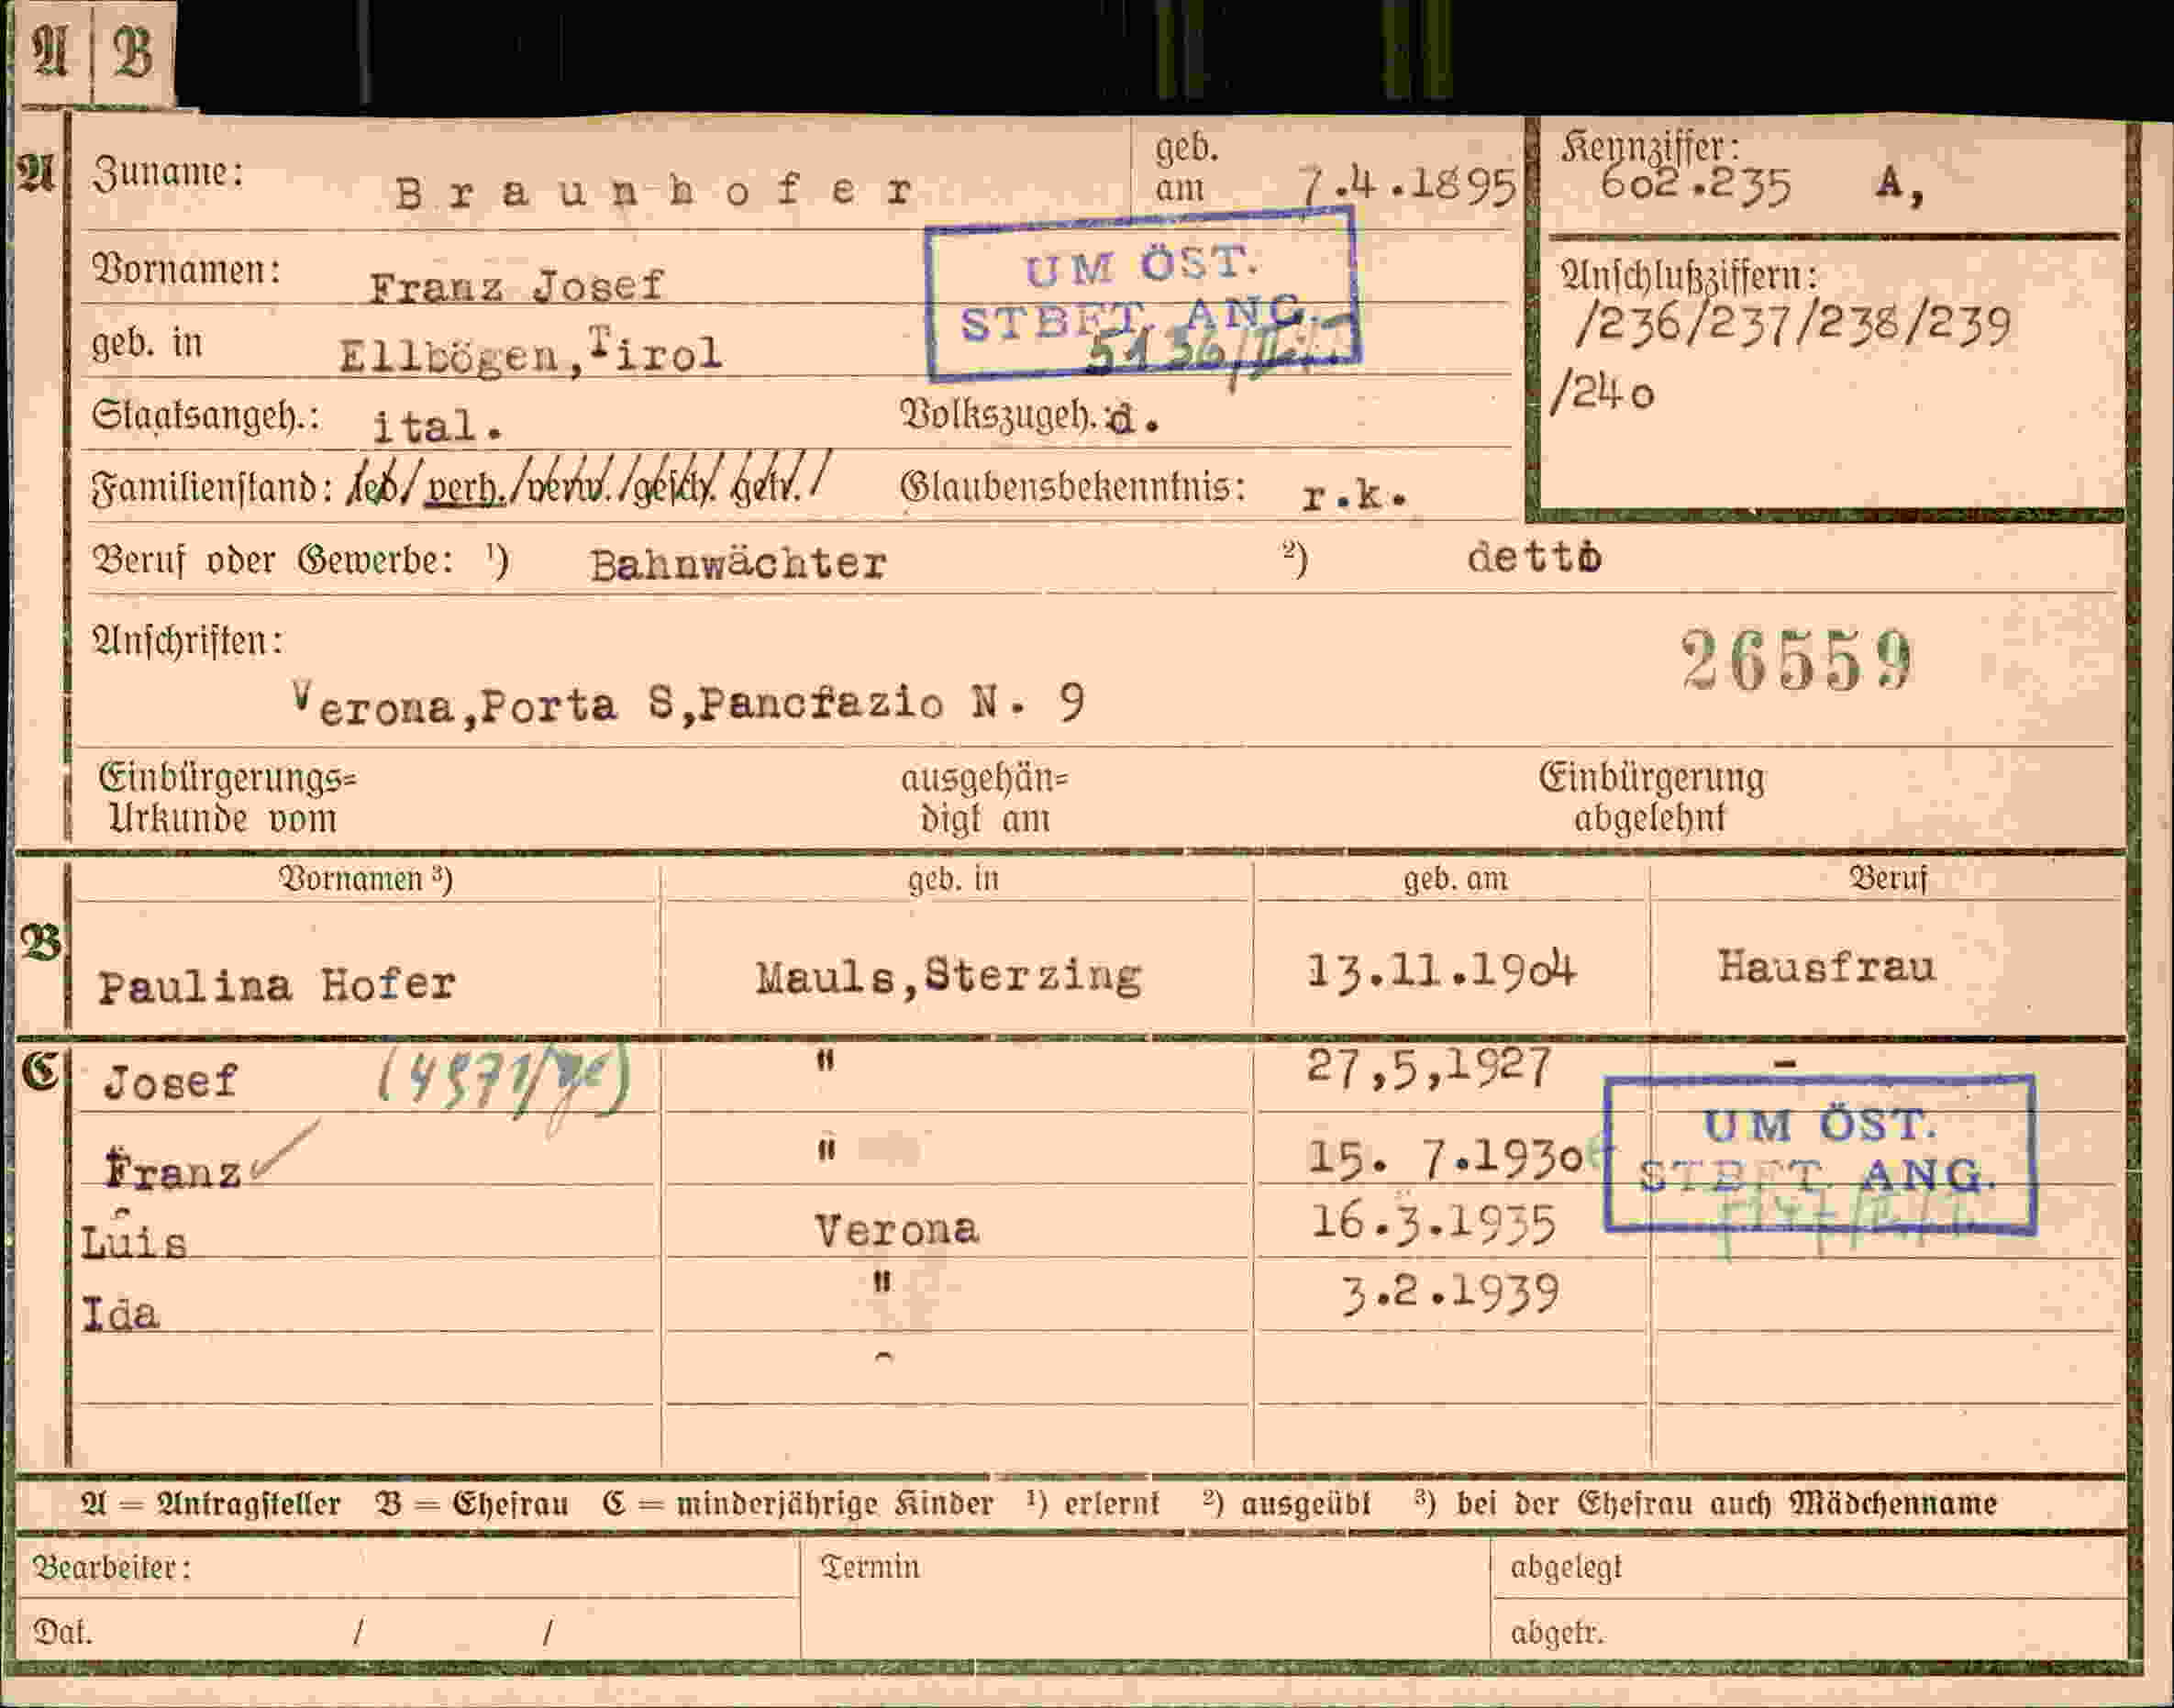 A B
A Zuname: Braunhofer geb. am 7.4.1895
Kennziffer: 602.235 A,
Vornamen: Franz Josef
UM ÖST.
STBFT. ANG.
Anschlußziffern:
/236/237/238/239
/240
geb. in Ellbögen,Tirol
Staatsangeh.: ital. Volkszugeh.: d.
Familienstand: led/ verh./verw./gesch. getr./ Glaubensbekenntnis: r.k.
Beruf oder Gewerbe: ¹) Bahnwächter ²) detto
Anschriften:
26559
Verona,Porta S,Pancrazio N. 9
Einbürgerungs= ausgehän= Einbürgerung
Urkunde vom digt am abgelehnt
Vornamen ³) geb. in geb. am Beruf
B Paulina Hofer Mauls,Sterzing 13.11.1904 Hausfrau
C Josef " 27,5,1927 -
Franz " 15. 7.1930
UM ÖST.
STBFT. ANG.
Luis Verona 16.3.1935
Ida " 3.2.1939
A = Antragsteller B = Ehefrau C = minderjährige Kinder ¹) erlernt ²) ausgeübt ³) bei der Ehefrau auch Mädchenname
Bearbeiter: Termin abgelegt
Dat. / / abgetr.